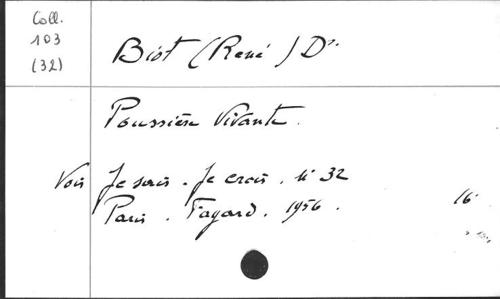 Coll.
103
(32)
Biot (René) Dr.
Poussière Vivante.
Voir Je sais - Je crois. n° 32
Paris. Fayard. 1956. 16°